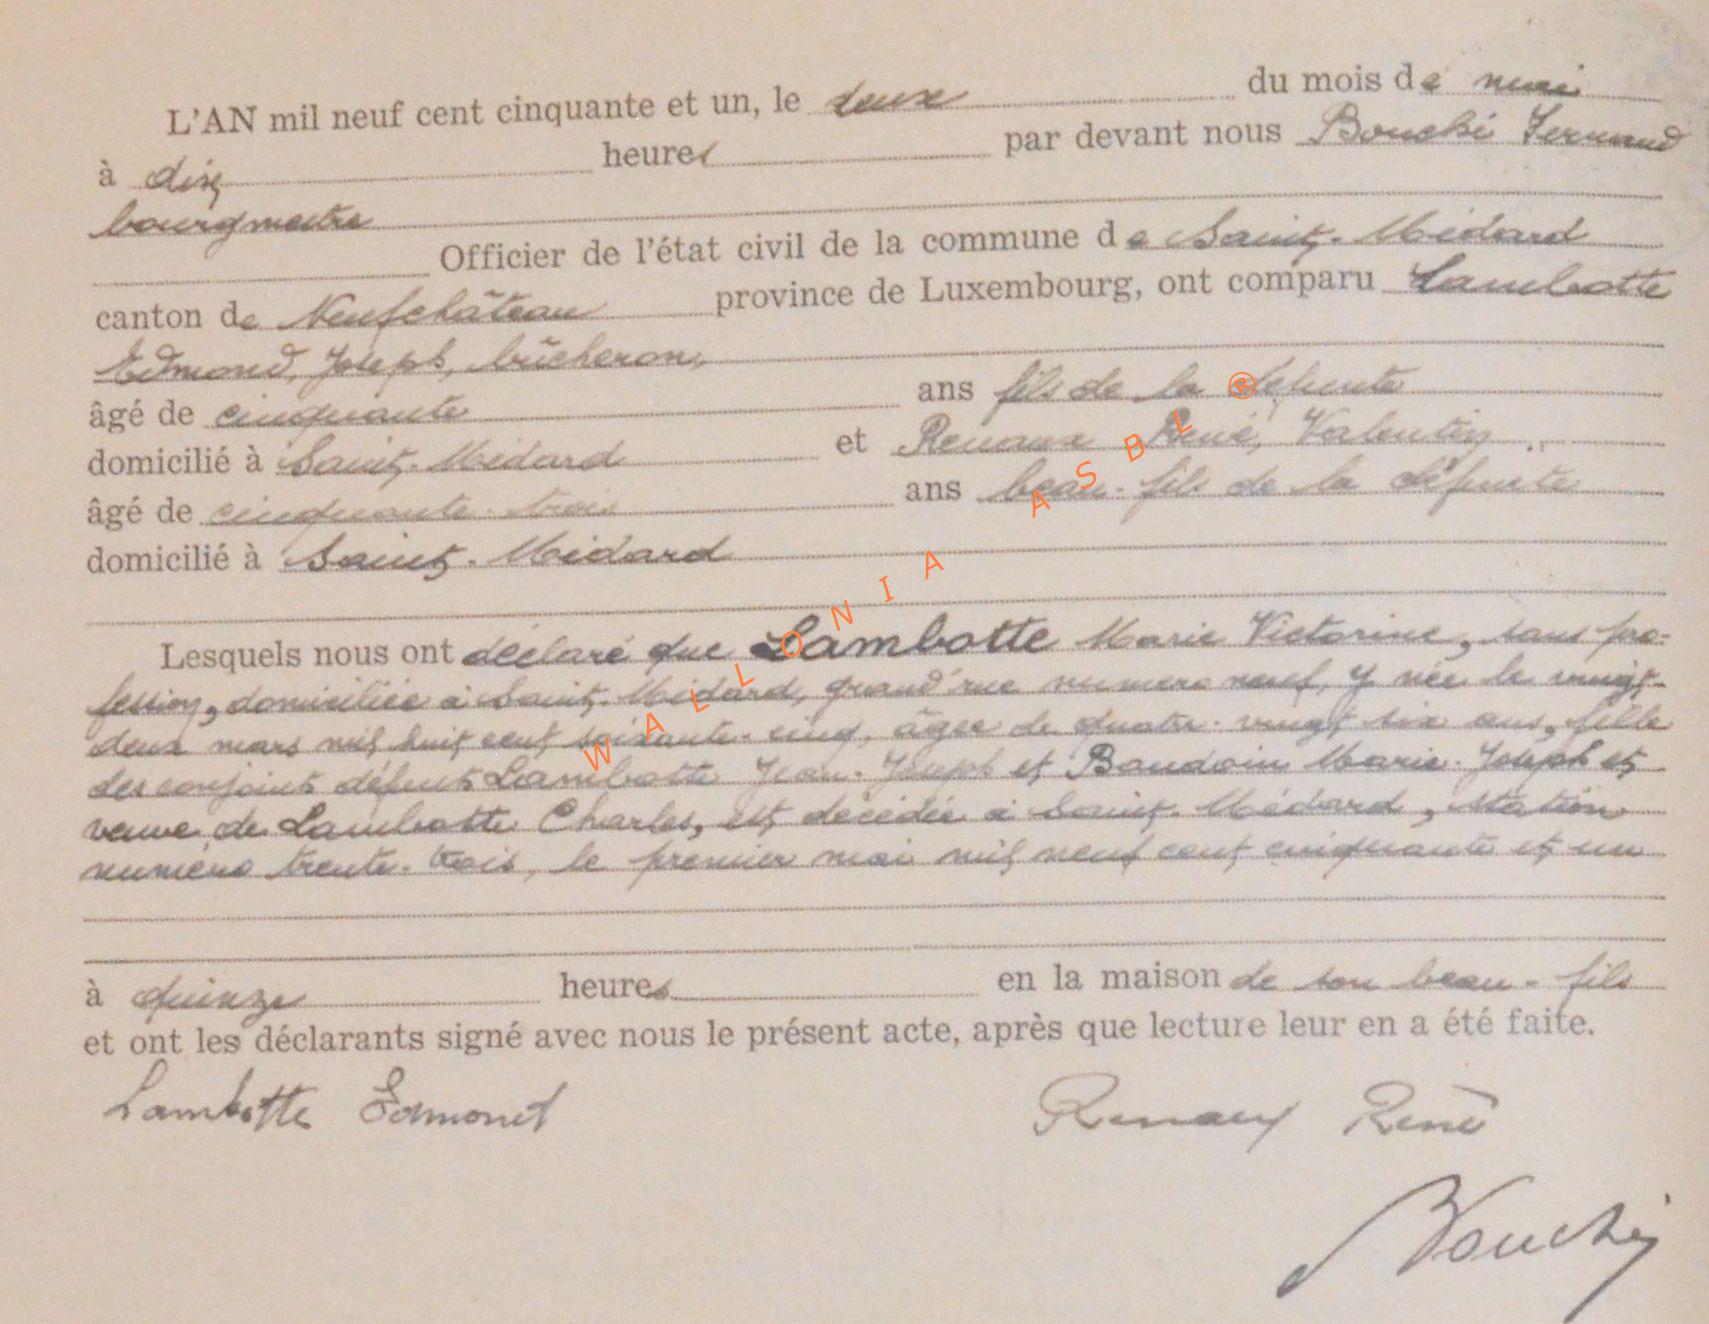 L'AN mil neuf cent cinquante et un, le deux du mois de mai
à dix heures par devant nous Bouché Fernand
bourgmestre
Officier de l'état civil de la commune de Saint-Médard
canton de Neufchâteau province de Luxembourg, ont comparu Lambotte
Edmond, Joseph, bûcheron,
âgé de cinquante ans fils de la défunte
domicilié à Saint-Médard et Renaux René, Valentin
âgé de cinquante-trois ans beau-fils de la défunte
domicilié à Saint-Médard
Lesquels nous ont déclaré que Lambotte Marie Victorine, sans pro-
fession, domiciliée à Saint-Médard, grand'rue numéro neuf, y née le vingt-
deux mars mil huit cent soixante-cinq, âgée de quatre-vingt six ans, fille
des conjoints défunts Lambotte Jean-Joseph et Baudoin Marie-Joseph et
veuve de Lambotte Charles, est décédée à Saint-Médard, station
numéro trente-trois, le premier mai mil neuf cent cinquante et un
à quinze heures en la maison de son beau-fils
et ont les déclarants signé avec nous le présent acte, après que lecture leur en a été faite.
Lambotte Edmond Renaux René
Bouché
WALLONIA ASBL ®